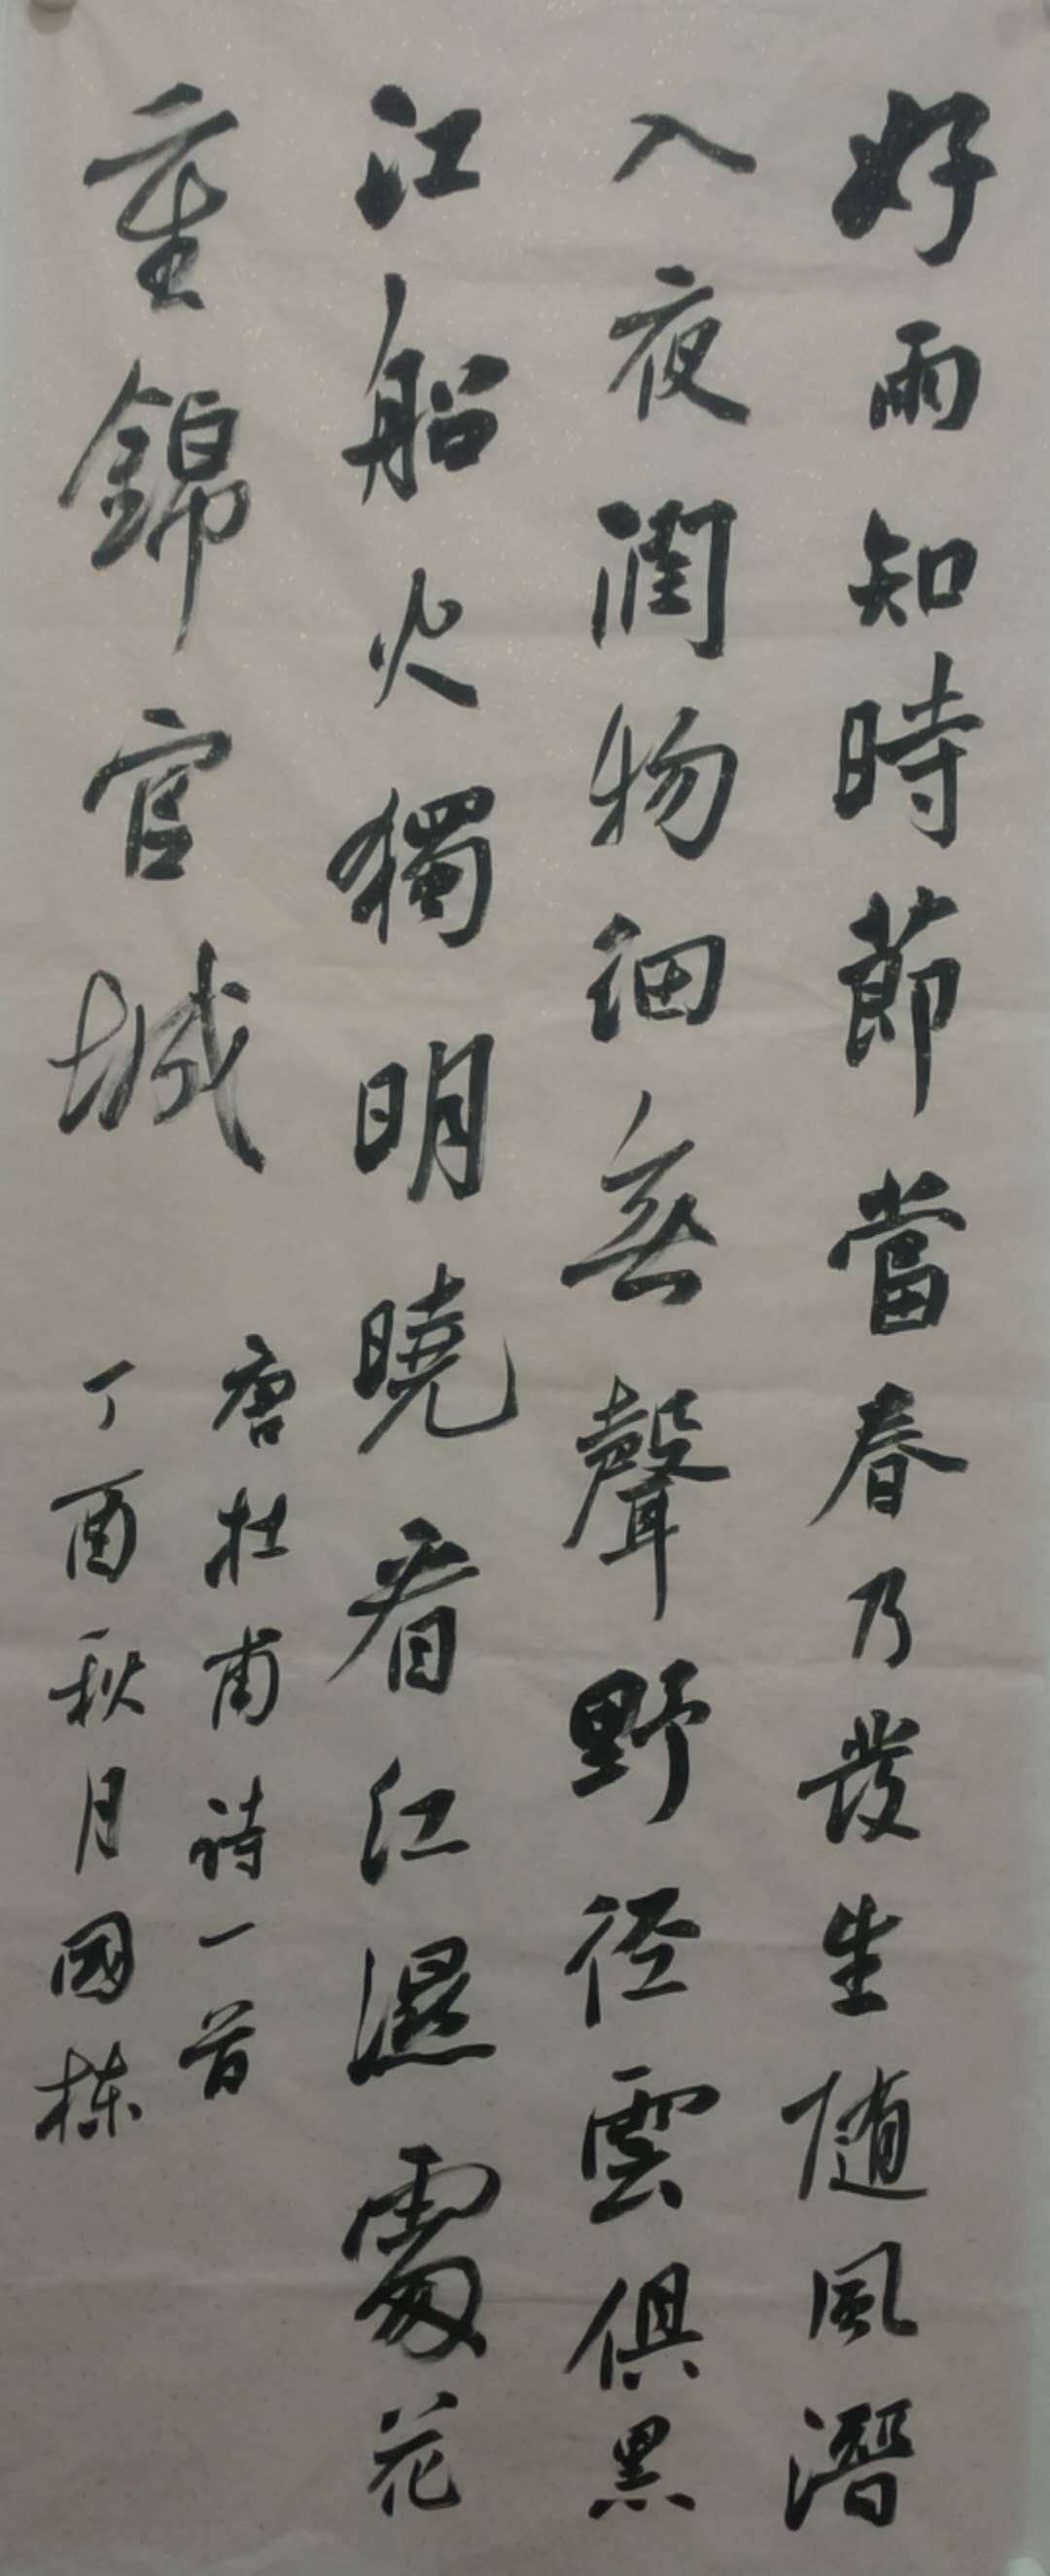 好雨知時節當春乃發生随風潛
入夜潤物細無聲野径雲俱黑
江船火獨明曉看红濕處花
重錦官城
唐杜甫詩一首
丁酉秋月國栋